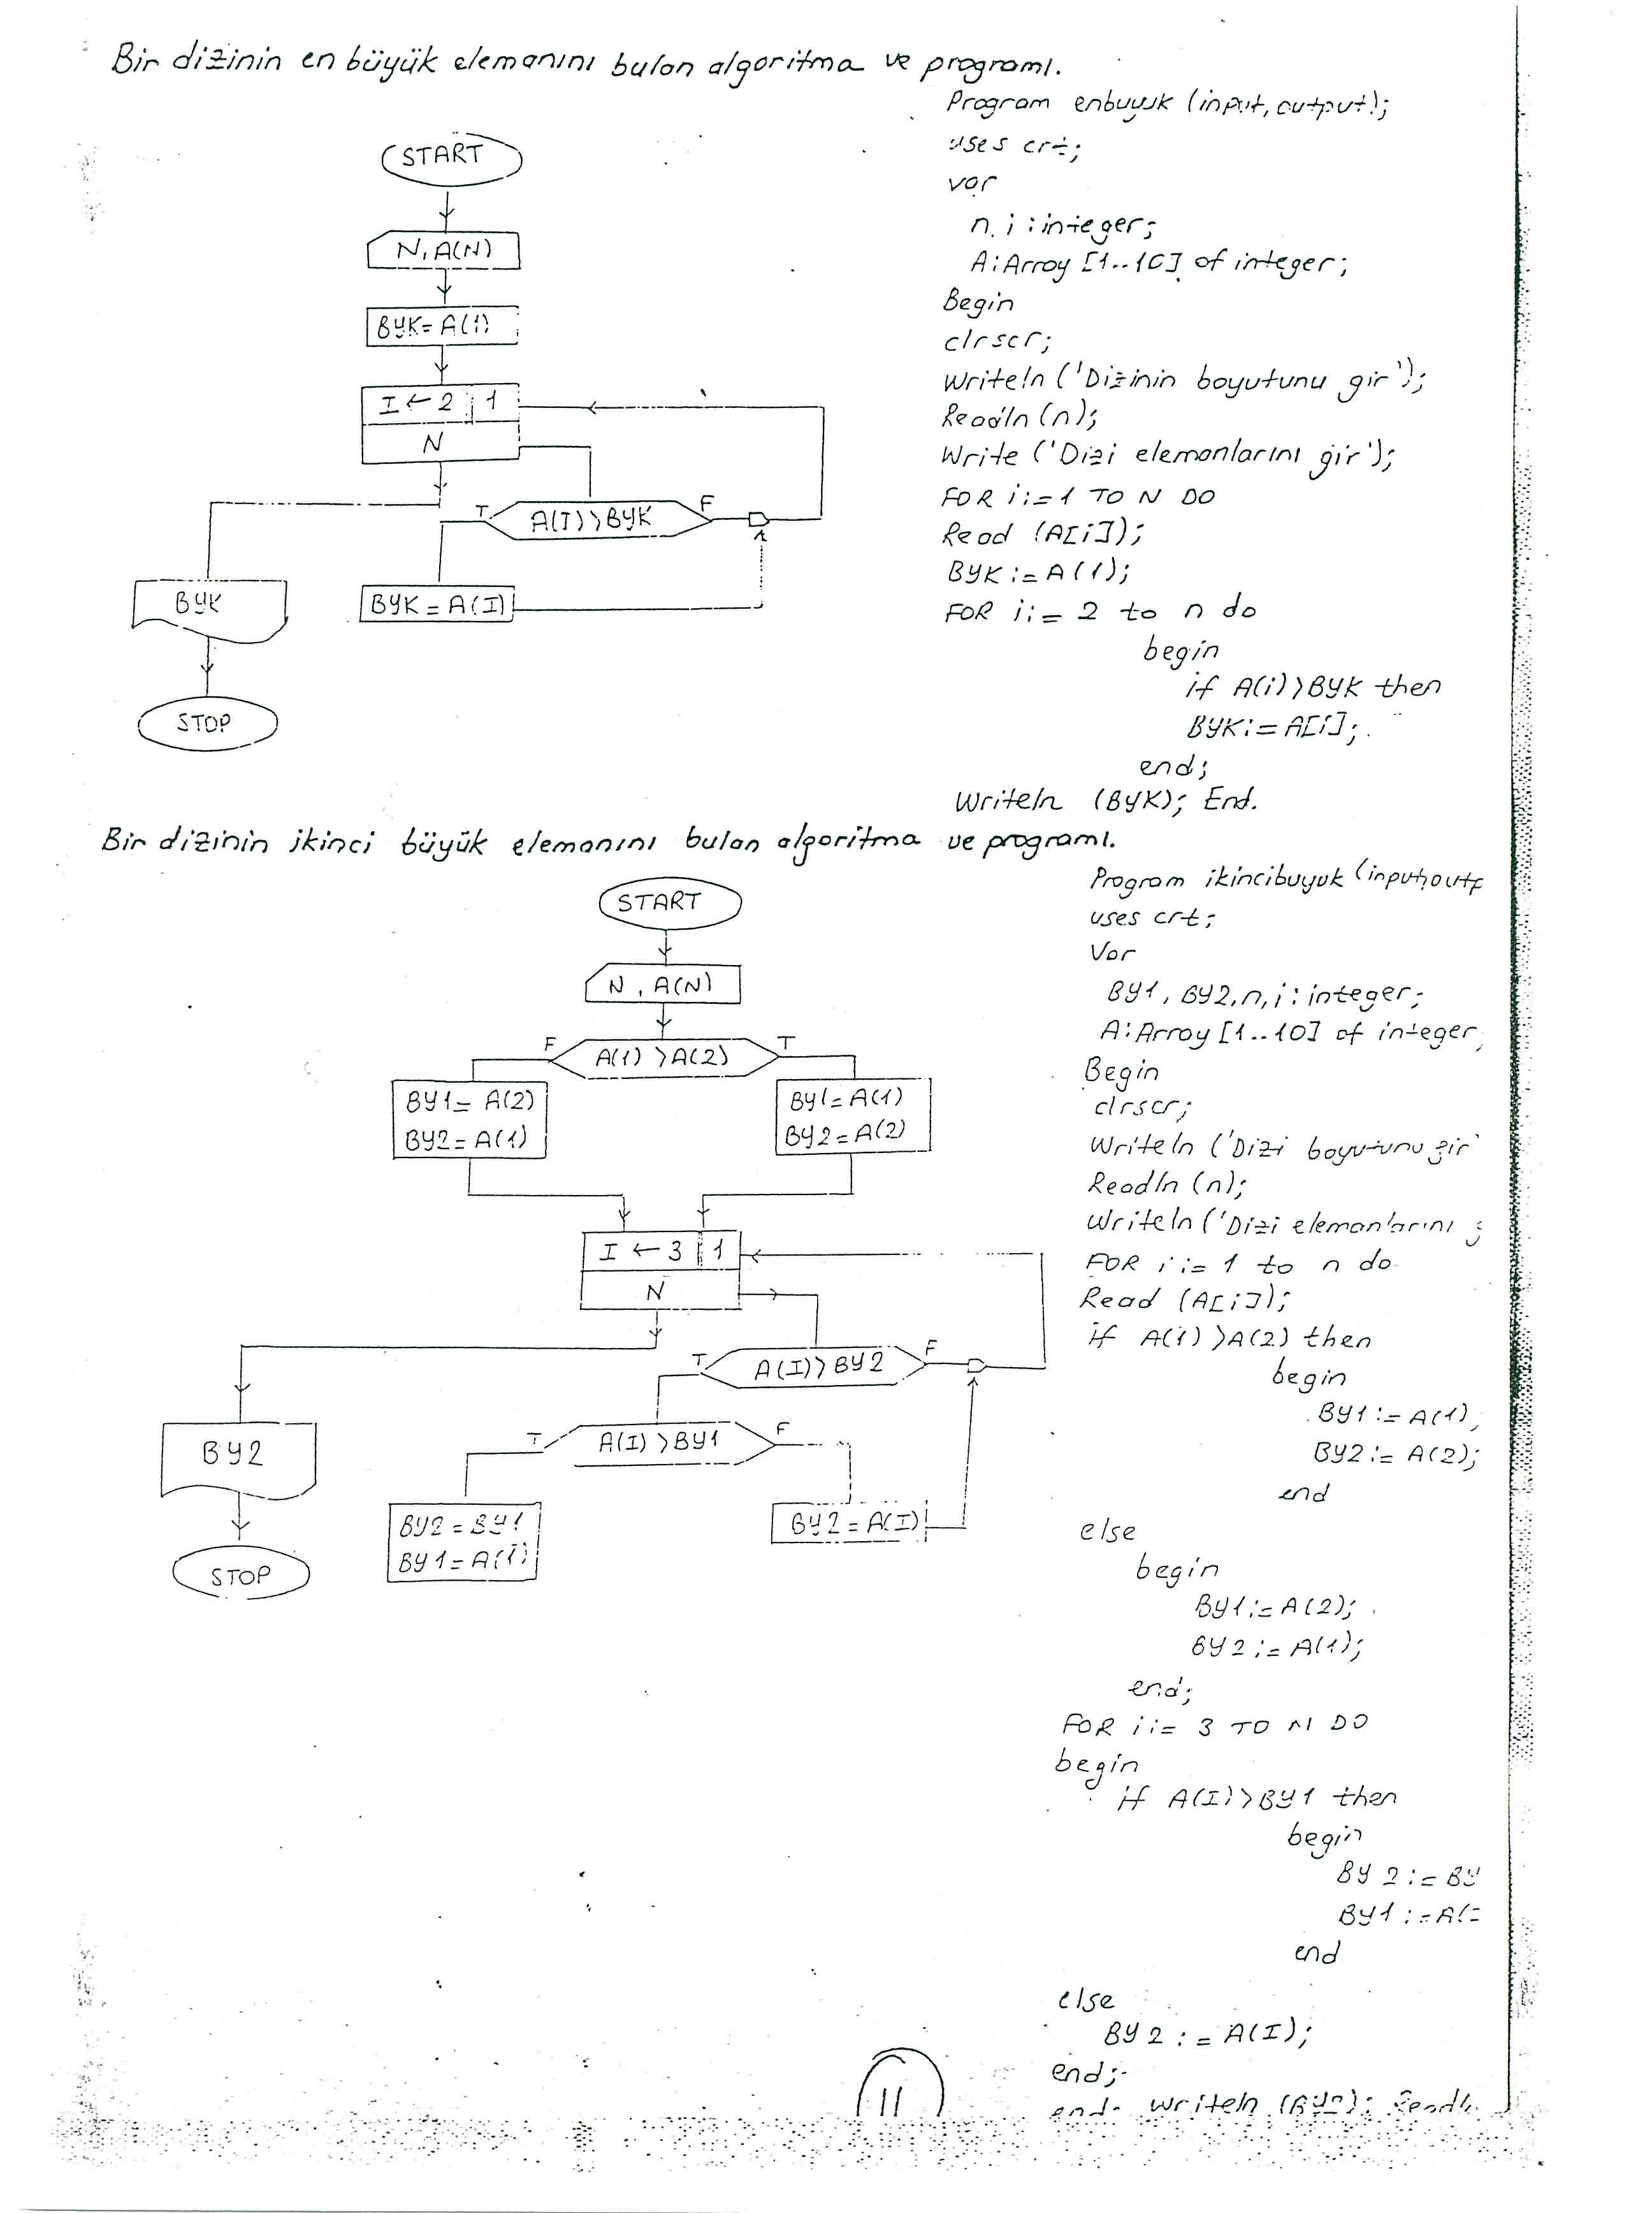 Bir dizinin en büyük elemanını bulan algoritma ve programı.
START
N, A(N)
BYK=A(1)
I ← 2 | 1
N
T A(I)>BYK F
BYK = A(I)
BYK
STOP
Program enbuyuk (input, output);
uses crt;
var
n, i : integer;
A: Array [1..10] of integer;
Begin
clrscr;
Writeln ('Dizinin boyutunu gir');
Readln (n);
Write ('Dizi elemanlarını gir');
FOR i:=1 TO N DO
Read (A[i]);
BYK := A(1);
FOR i:= 2 to n do
begin
if A(i)>BYK then
BYK:= A[i];
end;
Writeln (BYK); End.
Bir dizinin ikinci büyük elemanını bulan algoritma ve programı.
START
N, A(N)
F A(1) >A(2) T
BY1= A(2)
BY2= A(1)
BY1=A(1)
BY2=A(2)
I ← 3 | 1
N
T A(I)>BY2 F
T A(I) >BY1 F
BY2 = BY1
BY1=A(I)
BY2=A(I)
BY2
STOP
Program ikincibuyuk (input,outp
uses crt;
Var
BY1, BY2, n, i: integer;
A: Array [1..10] of integer;
Begin
clrscr;
Writeln ('Dizi boyutunu gir'
Readln (n);
Writeln ('Dizi elemanlarını
FOR i:= 1 to n do
Read (A[i]);
if A(1) >A(2) then
begin
BY1 := A(1),
BY2 := A(2);
end
else
begin
BY1:= A(2);
BY2 := A(1);
end;
FOR i:= 3 TO N DO
begin
if A(I)>BY1 then
begin
BY2 := BY
BY1 := A(
end
else
BY2 := A(I);
end;
end. writeln (BY2); Readl
11